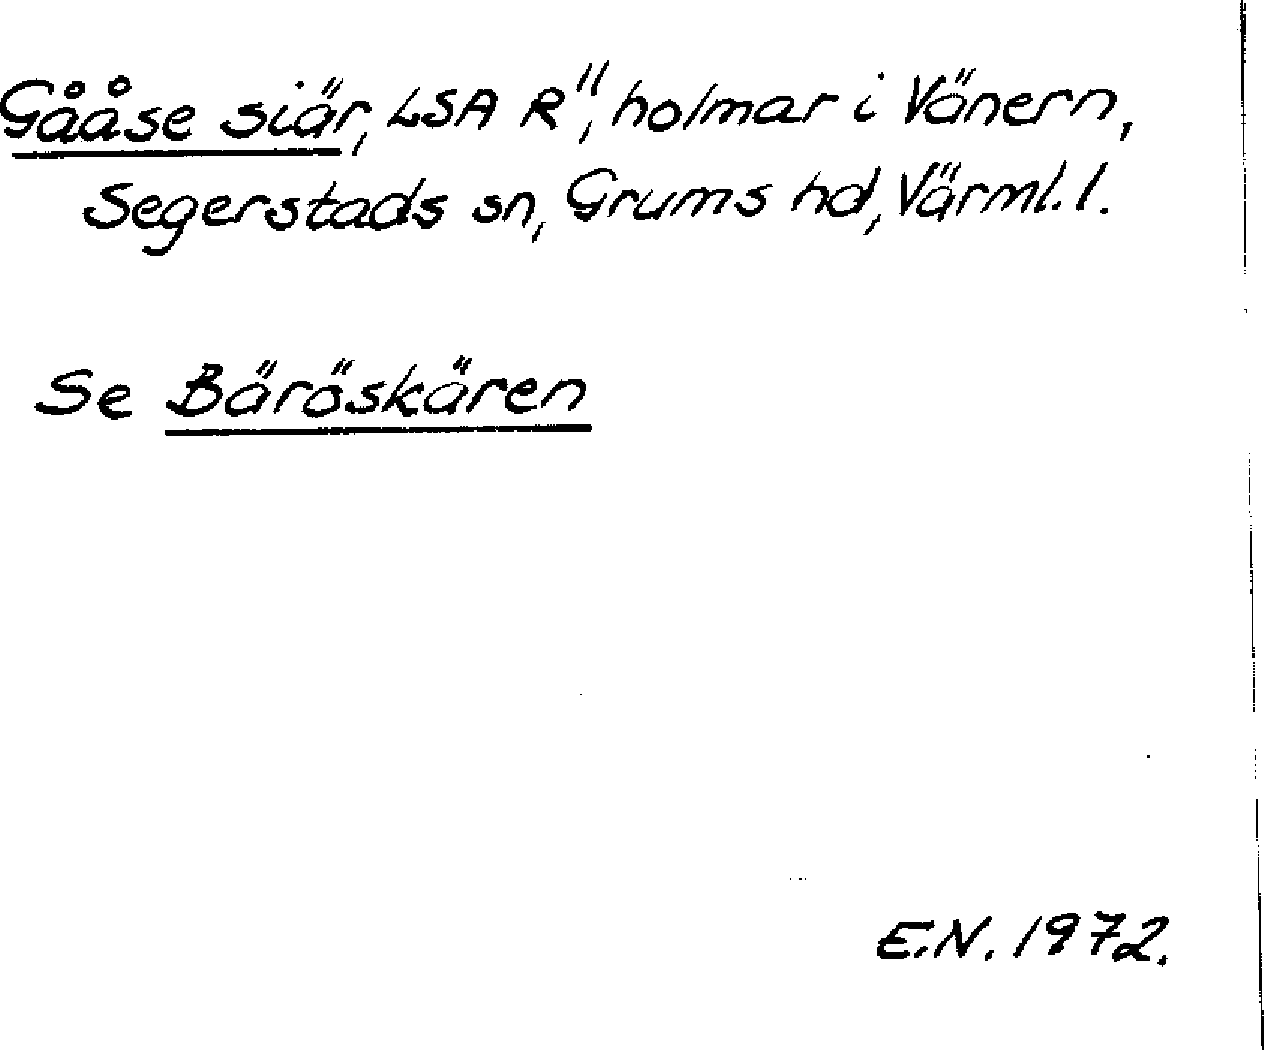 Gååse siär, LSA R", holmar i Vänern,
Segerstads sn, Grums hd, Värml. l.
Se Bäröskären
E.N. 1972.